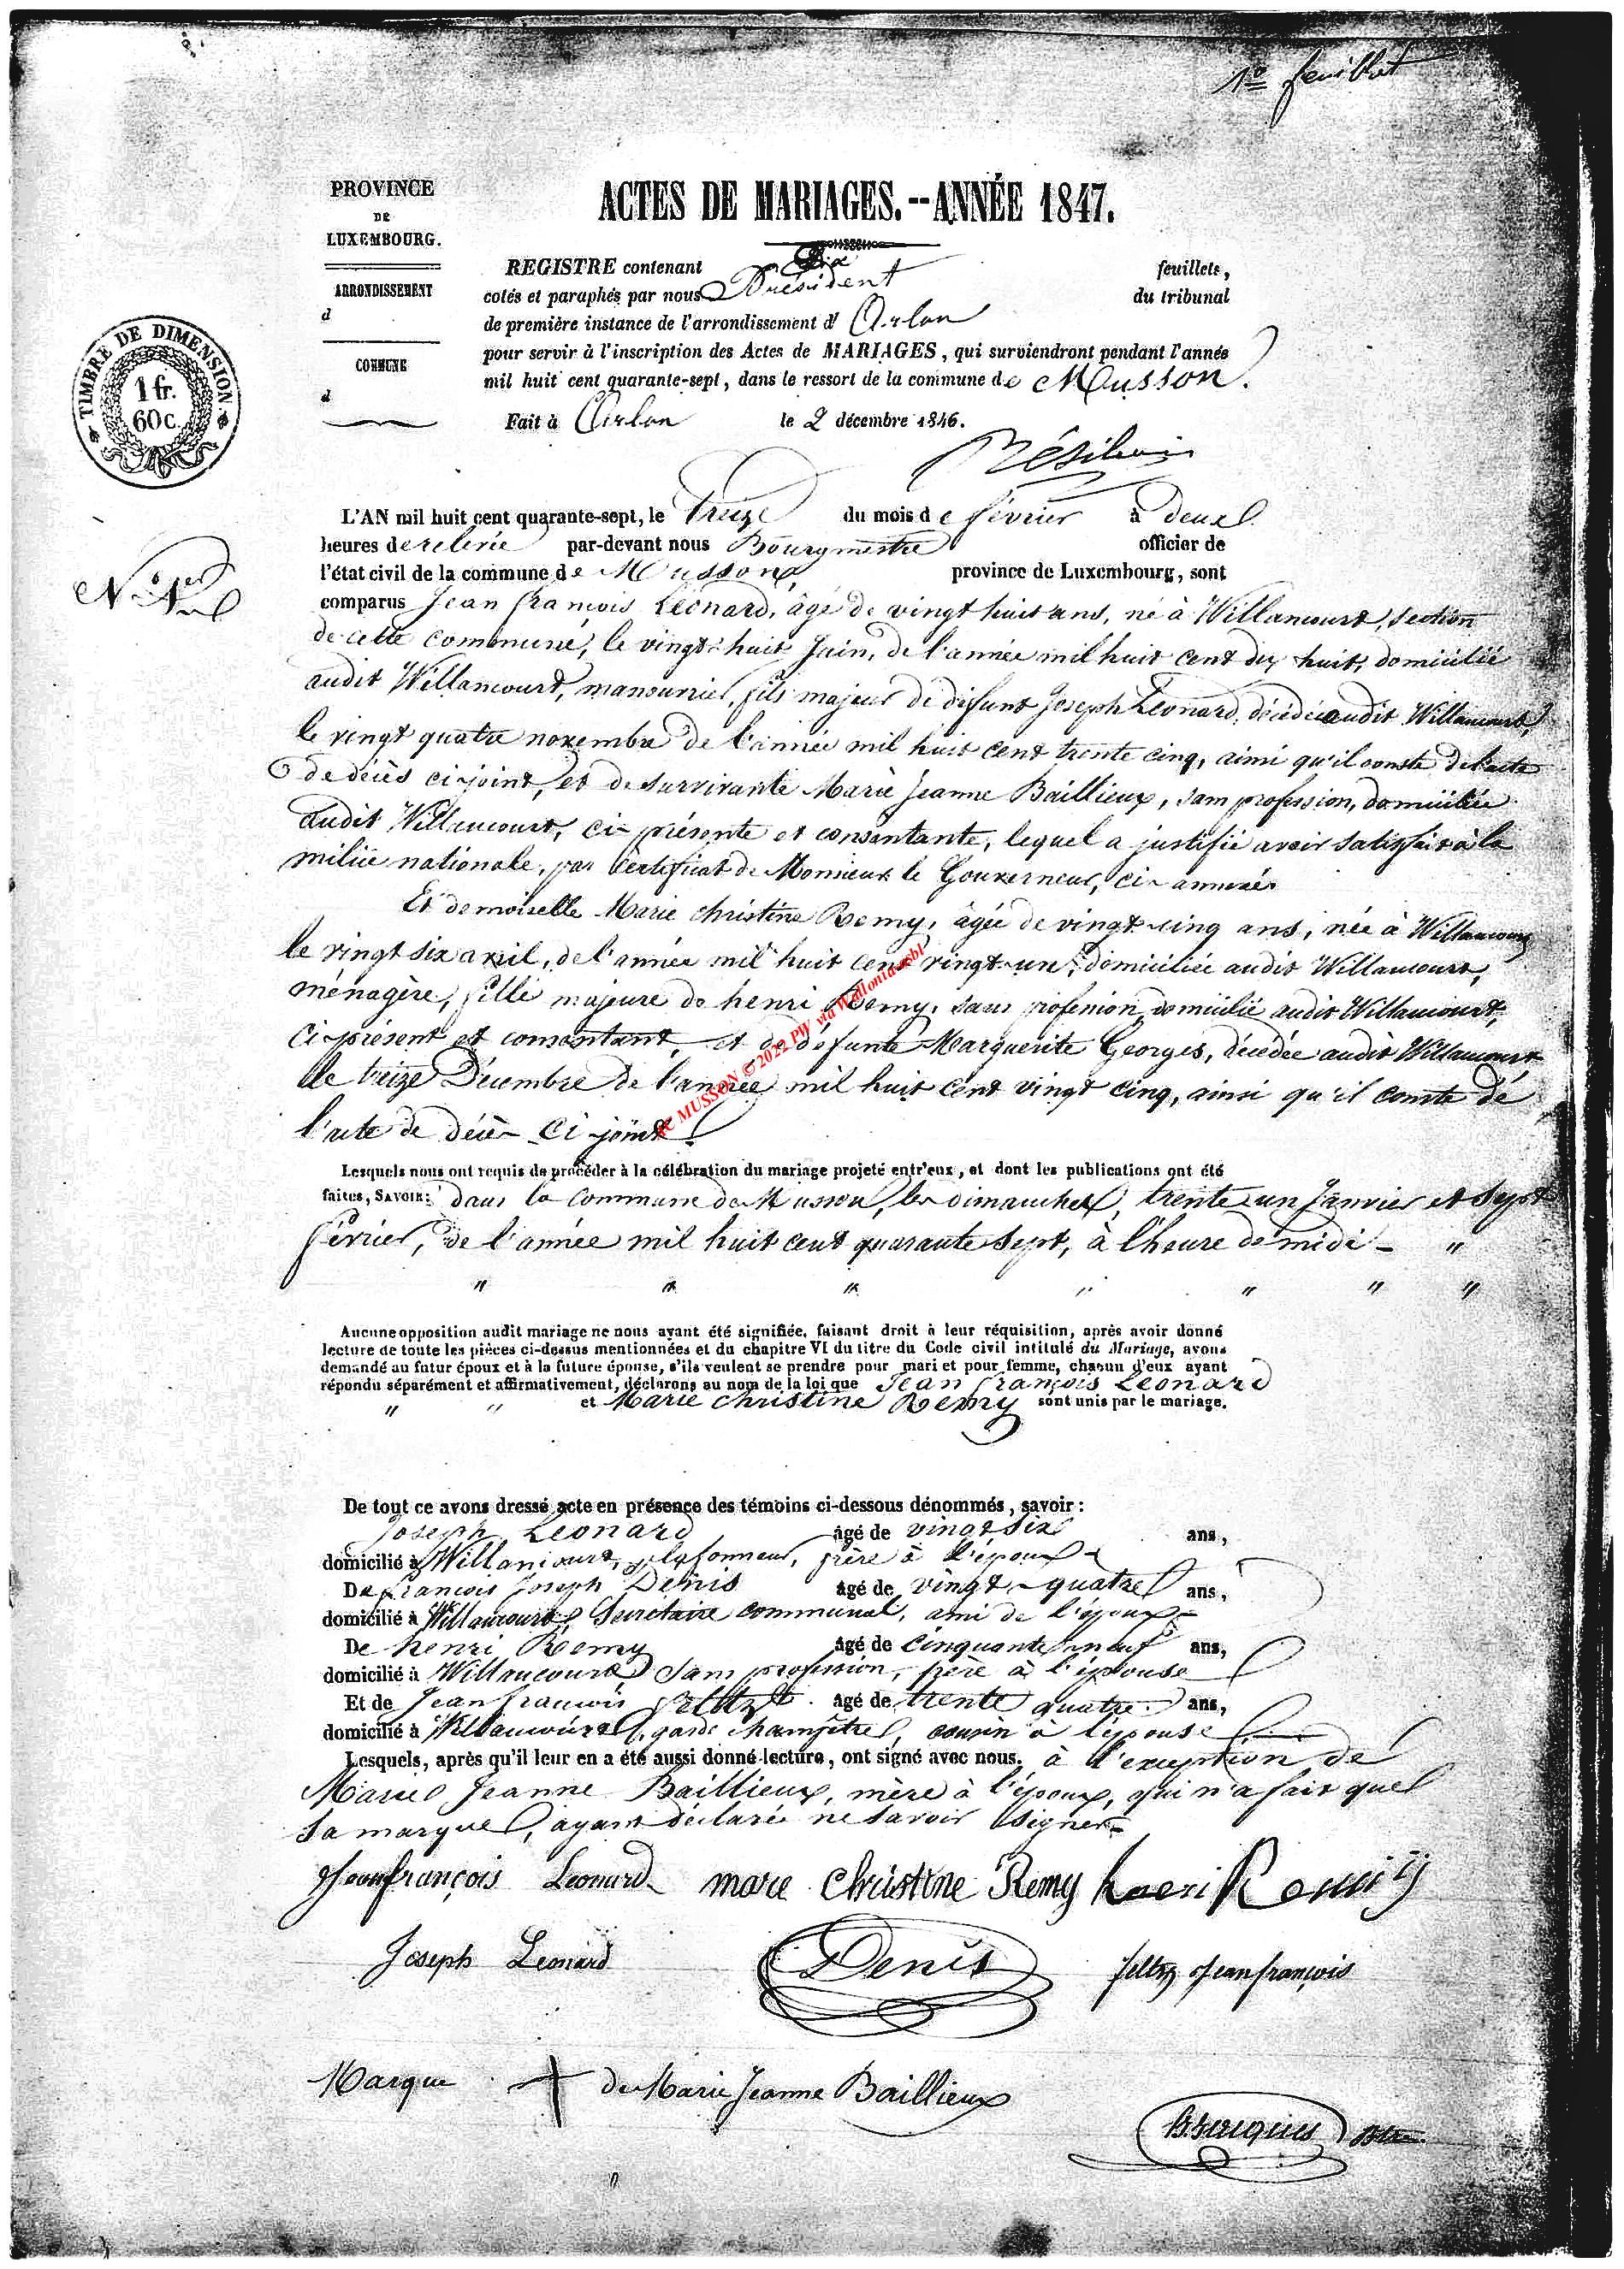 1er feuillet
PROVINCE
DE
LUXEMBOURG.
ARRONDISSEMENT
d
COMMUNE
d
TIMBRE DE DIMENSION
1 fr.
60 c.
ACTES DE MARIAGES.--ANNÉE 1847.
REGISTRE contenant Dix feuillets,
cotés et paraphés par nous Président du tribunal
de première instance de l'arrondissement d' Arlon
pour servir à l'inscription des Actes de MARIAGES, qui surviendront pendant l'année
mil huit cent quarante-sept, dans le ressort de la commune de Musson.
Fait à Arlon le 2 décembre 1846.
L'AN mil huit cent quarante-sept, le treize du mois de février à deux
heures de relevée par-devant nous Bourgmestre officier de
l'état civil de la commune de Musson province de Luxembourg, sont
comparus Jean françois Léonard, âgé de vingt huit ans, né à Willancourt, section
de cette commune, le vingt-huit Juin, de l'année mil huit cent dix huit, domicilié
audit Willancourt, manouvrier, fils majeur de défunt Joseph Léonard, décédé audit Willancourt,
le vingt quatre novembre de l'année mil huit cent trente cinq, ainsi qu'il conste de l'acte
de décès ci-joint, et de survivante Marie Jeanne Baillieux, sans profession, domiciliée
audit Willancourt, ci-présente et consentante, lequel a justifié avoir satisfait à la
milice nationale, par Certificat de Monsieur le Gouverneur, ci-annexé.
Et demoiselle Marie christine Remy, âgée de vingt-cinq ans, née à Willancourt
le vingt six avril, de l'année mil huit cent vingt-un, domiciliée audit Willancourt,
ménagère, fille majeure de henri Remy, sans profession, domicilié audit Willancourt,
Ci-présent et consentant, et de défunte Marguerite Georges, décédée audit Willancourt
le treize Décembre de l'année mil huit cent vingt cinq, ainsi qu'il conste de
l'acte de décès ci-joint
MUSSON © 2022 PW via Wallonia asbl
Lesquels nous ont requis de procéder à la célébration du mariage projeté entr'eux, et dont les publications ont été
faites, SAVOIR: dans la Commune de Musson, les dimanches, trente un Janvier et sept
février, de l'année mil huit cent quarante sept, à l'heure de midi - "
" " " " " " "
Aucune opposition audit mariage ne nous ayant été signifiée, faisant droit à leur réquisition, après avoir donné
lecture de toute les pièces ci-dessus mentionnées et du chapitre VI du titre du Code civil intitulé du Mariage, avons
demandé au futur époux et à la future épouse, s'ils veulent se prendre pour mari et pour femme, chacun d'eux ayant
répondu séparément et affirmativement, déclarons au nom de la loi que Jean françois Léonard
" " et Marie christine Remy sont unis par le mariage.
De tout ce avons dressé acte en présence des témoins ci-dessous dénommés, savoir:
Joseph Léonard âgé de vingt six ans,
domicilié à Willancourt, plafonneur, frère à l'époux
De francois Joseph Denis âgé de vingt-quatre ans,
domicilié à Willancourt, Secrétaire communal, ami de l'époux
De henri Remy âgé de cinquante neuf ans,
domicilié à Willancourt, sans profession, père à l'épouse
Et de Jean francois feltz âgé de trente quatre ans,
domicilié à Willancourt, garde champêtre, cousin à l'épouse
Lesquels, après qu'il leur en a été aussi donné lecture, ont signé avec nous. à l'exception de
Marie Jeanne Baillieux, mère à l'époux, qui n'a fait que
sa marque, ayant déclaré ne savoir signer
No 1er
Jean françois Leonard marie Christine Remy henri Remÿ
Joseph Leonard Denis feltz Jean françois
Marque + de Marie Jeanne Baillieux